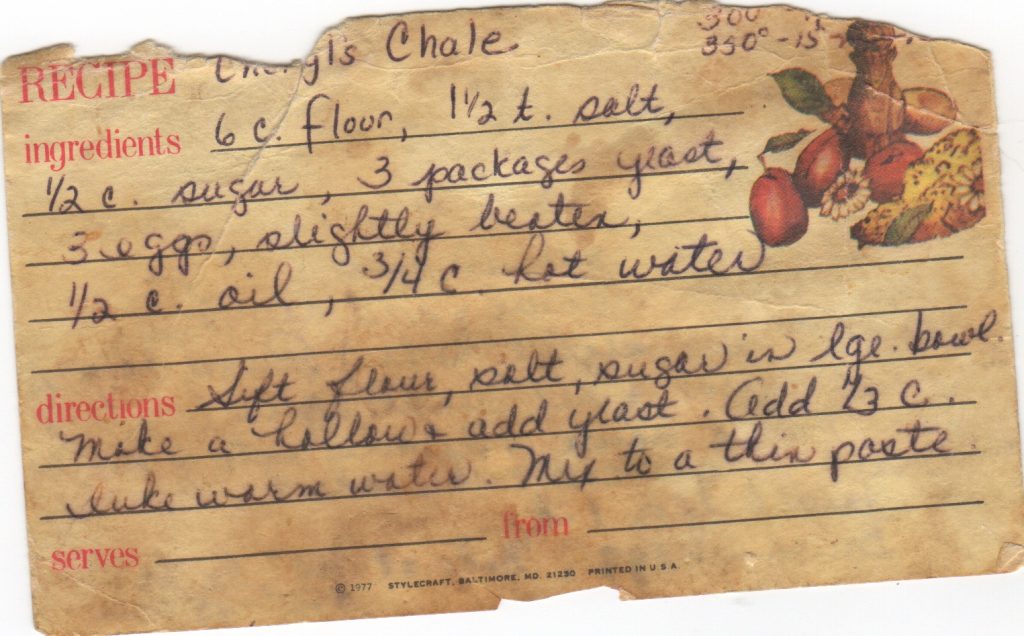 300
350° - 15
RECIPE Cheryl's Chale
ingredients 6 c. flour, 1 1/2 t. salt,
1/2 c. sugar, 3 packages yeast,
3 eggs, slightly beaten,
1/2 c. oil, 3/4 c. hot water
directions Sift flour, salt, sugar in lge. bowl.
Make a hollow & add yeast. Add 1/3 c.
luke warm water. Mix to a thin paste.
serves from
© 1977 STYLECRAFT, BALTIMORE, MD. 21230 PRINTED IN U S A